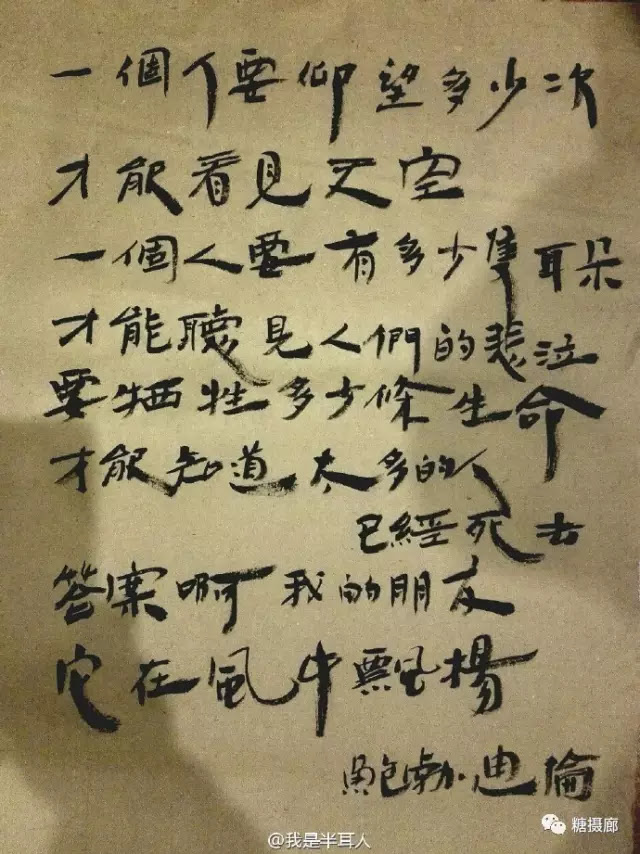 一個人要仰望多少次
才能看見天空
一個人要有多少隻耳朵
才能聽見人們的悲泣
要牺牲多少條生命
才能知道太多的人
已經死去
答案啊 我的朋友
它在風中飄楊
鮑勃·迪倫
@我是半耳人
糖摄廊